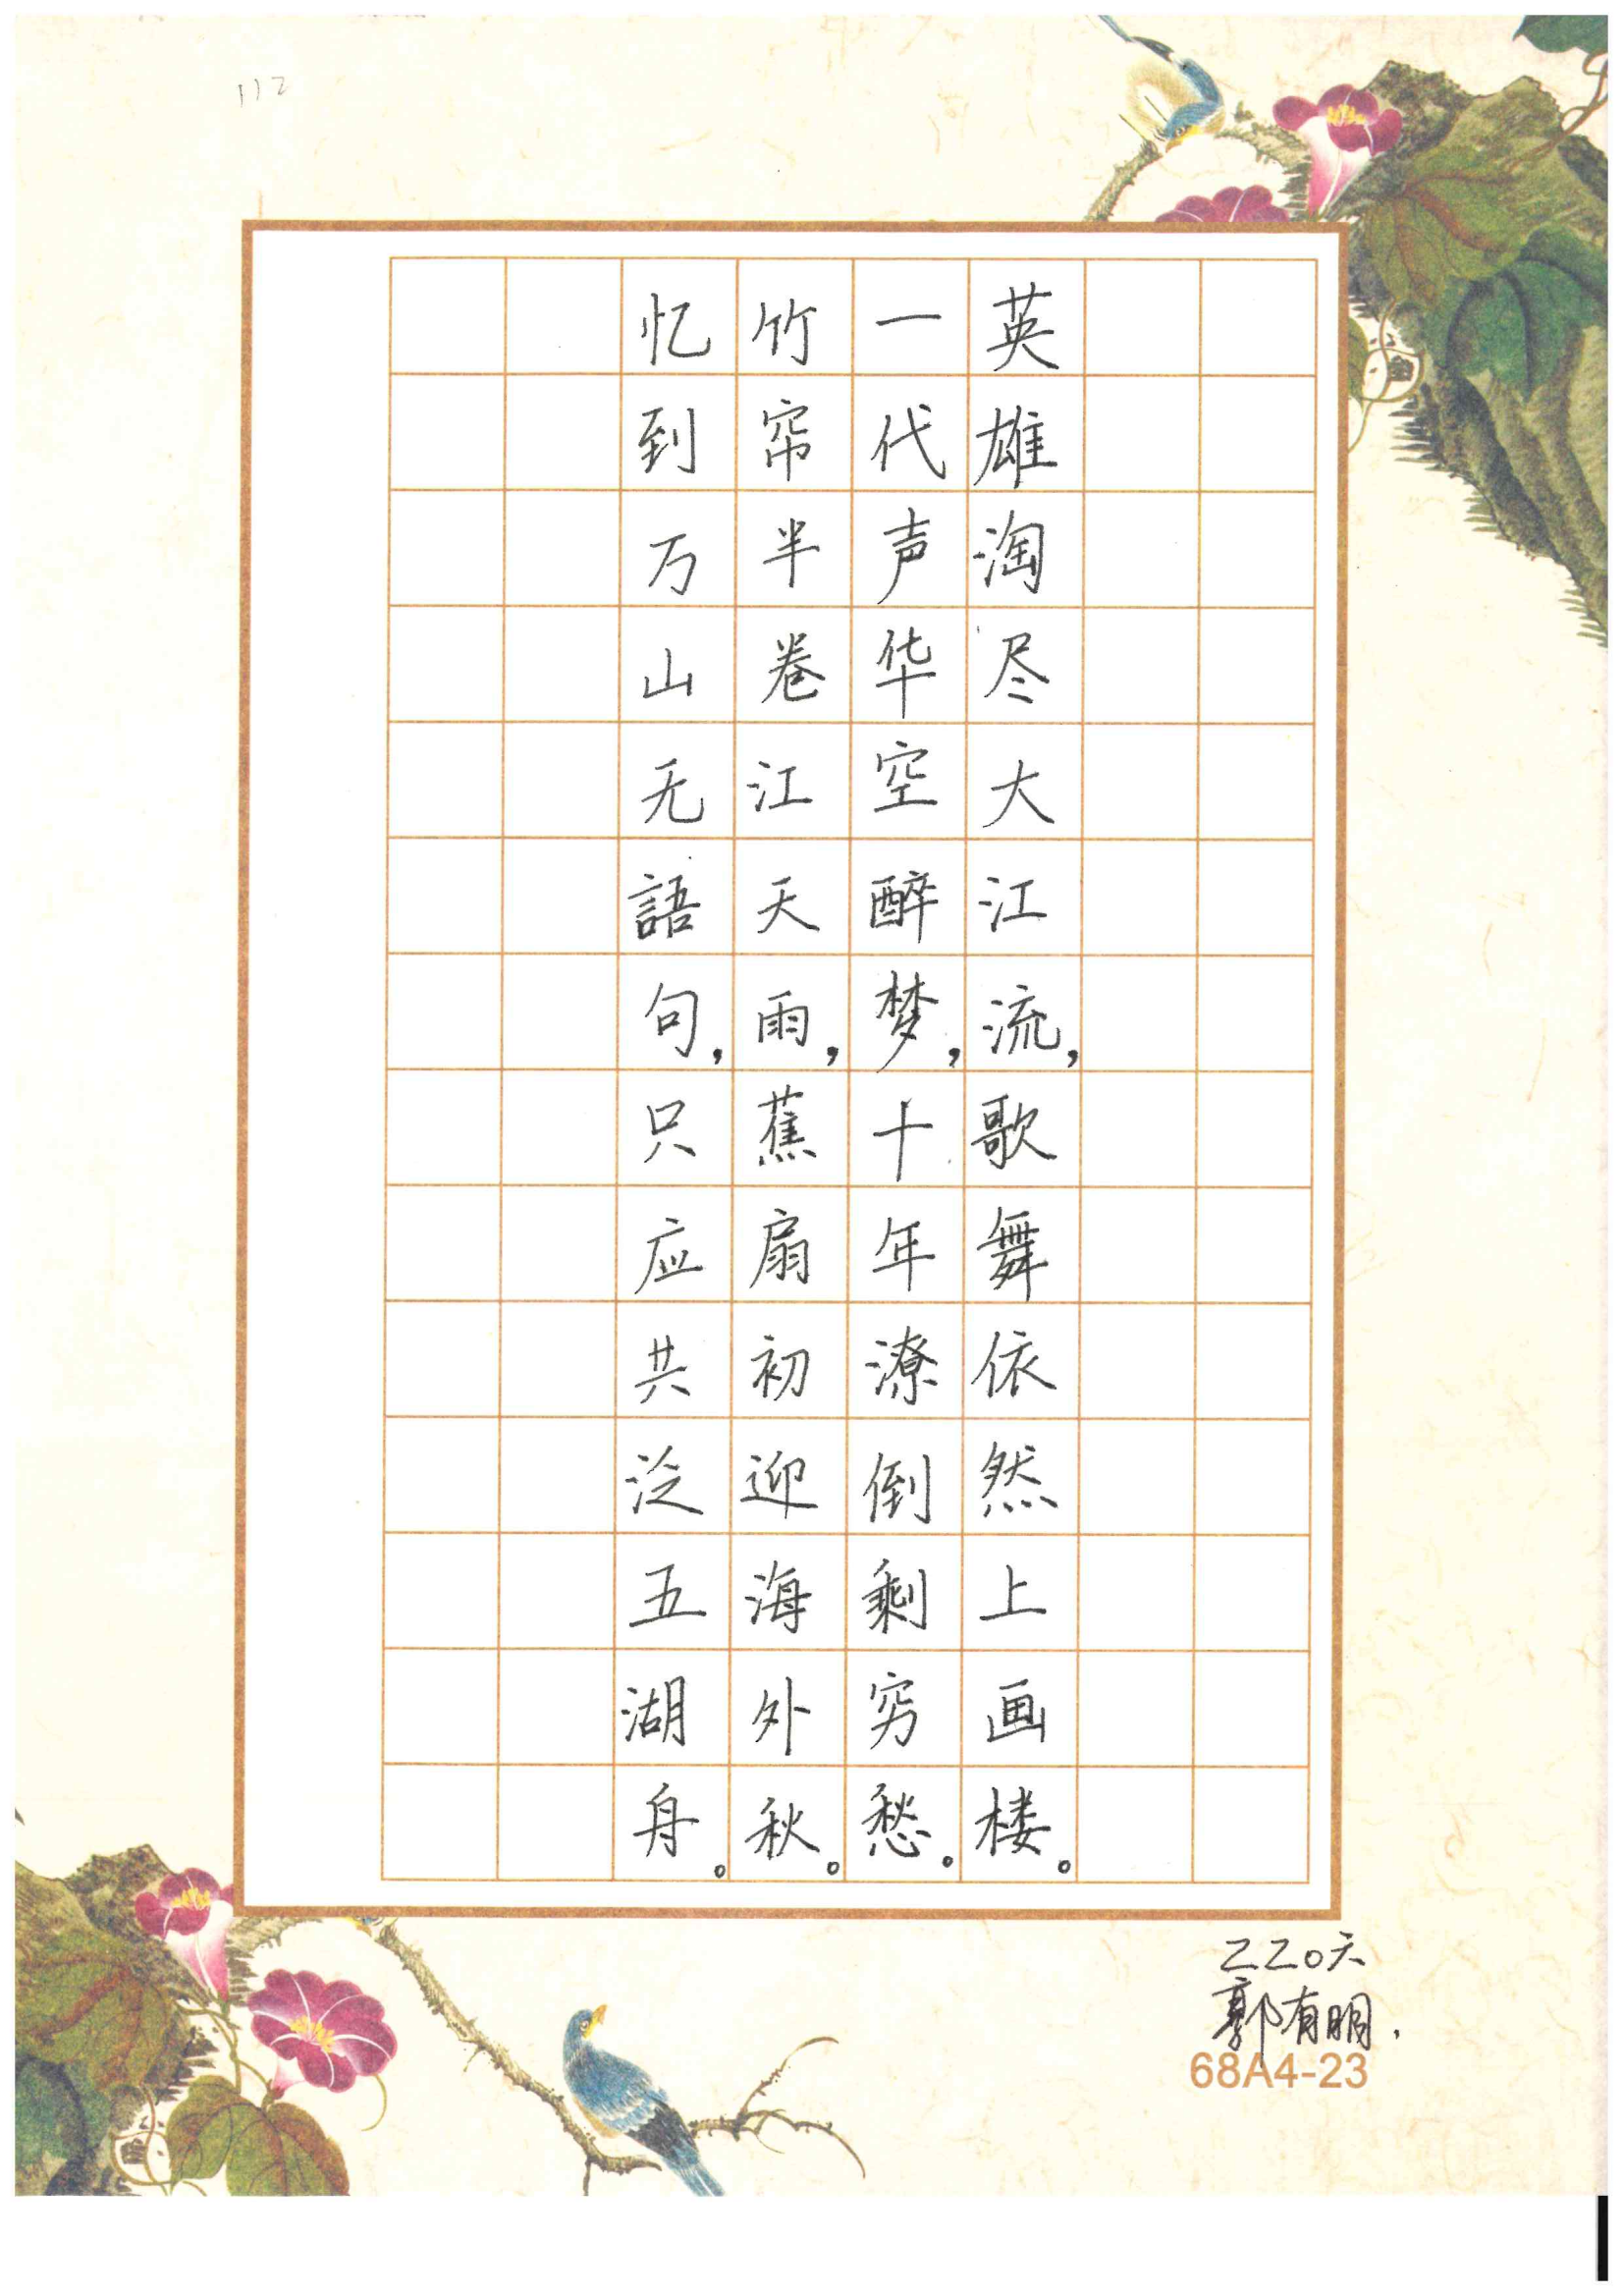 112
英雄淘尽大江流，歌舞依然上画楼。
一代声华空醉梦，十年潦倒剩穷愁。
竹帘半卷江天雨，蕉扇初迎海外秋。
忆到万山无語句，只应共泛五湖舟。
220天
郭有明.
68A4-23